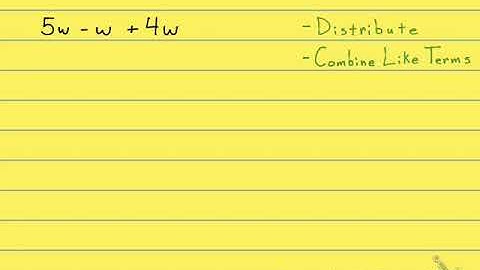 5w - w + 4w
- Distribute
- Combine Like Terms